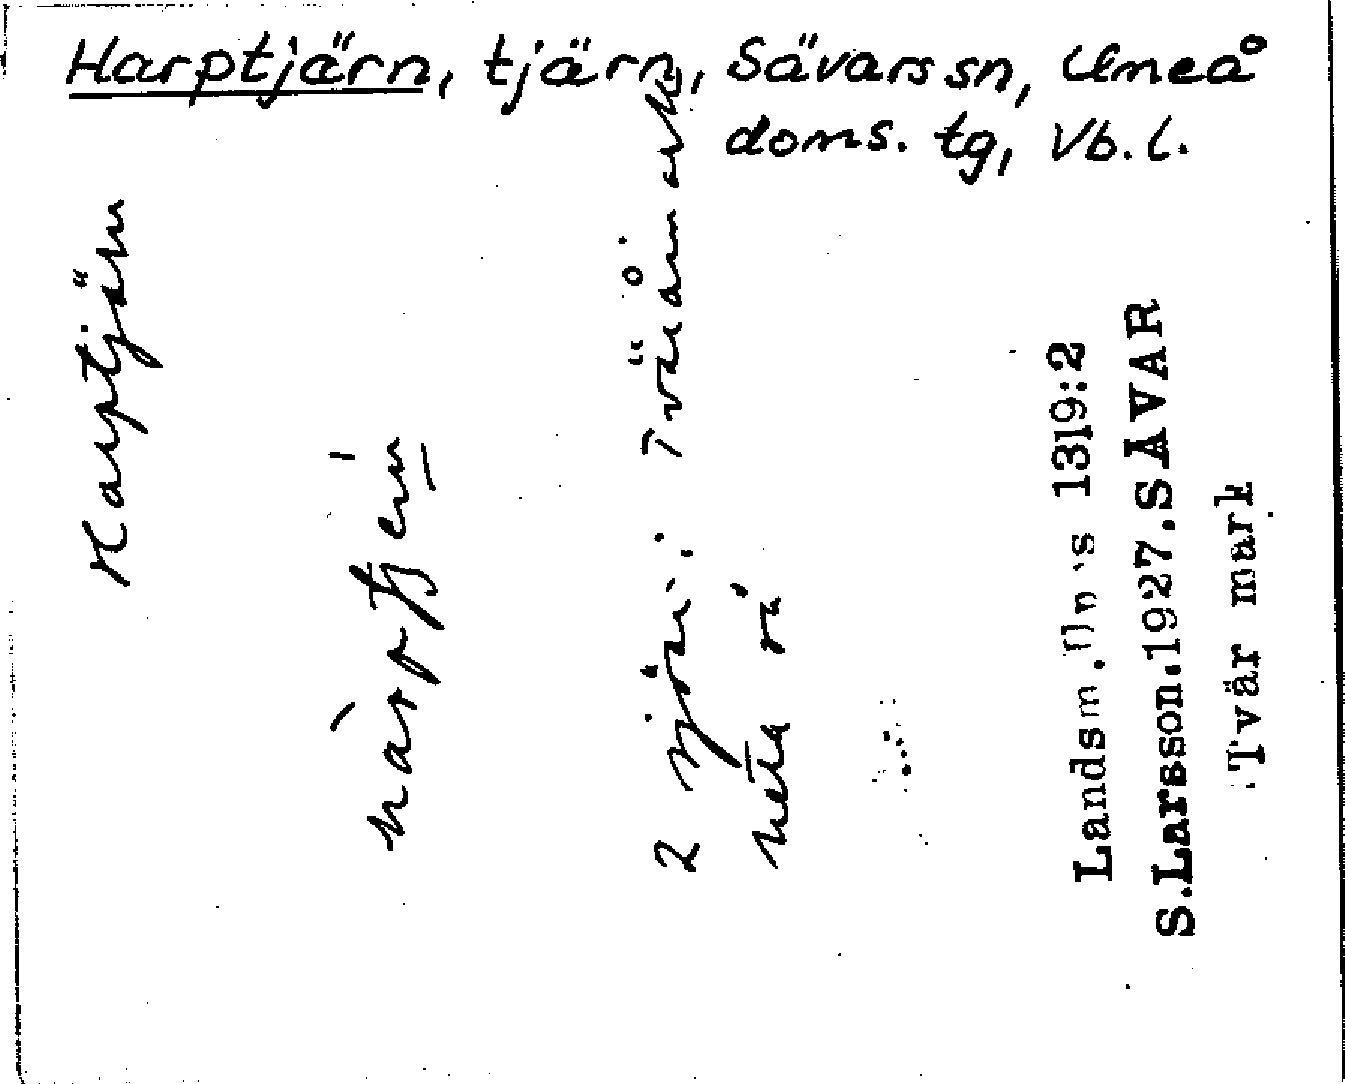 Harptjärn, tjärn, Sävars sn, Umeå
doms. tg, Vb. l.
Harptjärn
2 sjöar i Tväråmark
heta så
Landsm. Upps 1319:2
S.Larsson.1927.SÄVAR
Tvär mark